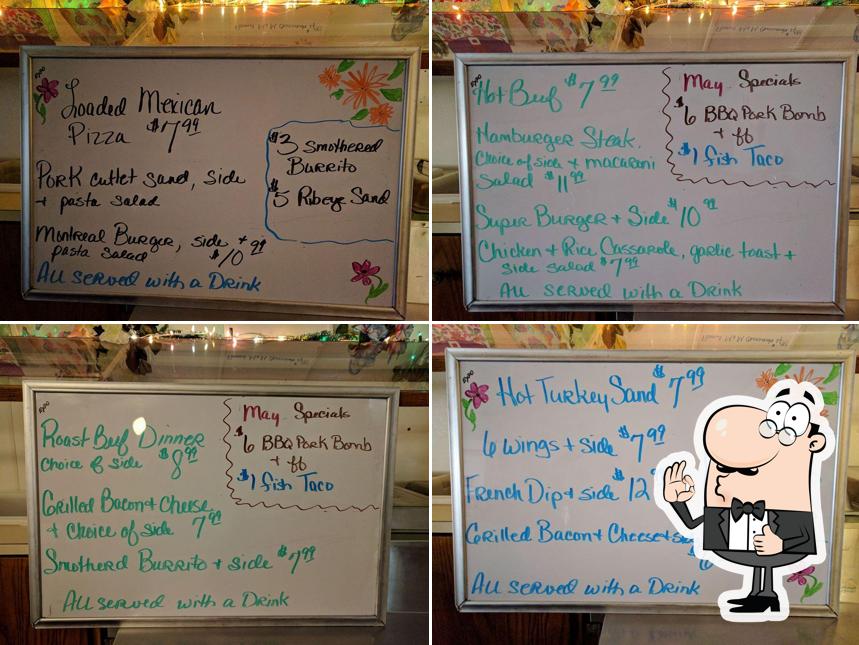 Loaded Mexican
Pizza $7.99
Pork cutlet sand, side
+ pasta salad
Montreal Burger, side +
pasta salad $10.99
All served with a Drink
$3 Smothered
Burrito
$5 Ribeye Sand
Hot Beef $7.99
Hamburger Steak.
Choice of side + macaroni
Salad $11.99
Super Burger + Side $10.99
Chicken + Rice Cassarole, garlic toast +
side salad $7.99
All served with a Drink
May Specials
$6 BBQ Pork Bomb
+ ff
$1 fish Taco
Roast Beef Dinner
Choice of side $8.99
Grilled Bacon + Cheese
+ Choice of side 7.99
Smotherd Burrito + side $7.99
All served with a Drink
May Specials
$6 BBQ Pork Bomb
+ ff
$1 fish Taco
Hot Turkey Sand $7.99
6 wings + side $7.99
French Dip + side $12
Grilled Bacon + Cheese +
All served with a Drink